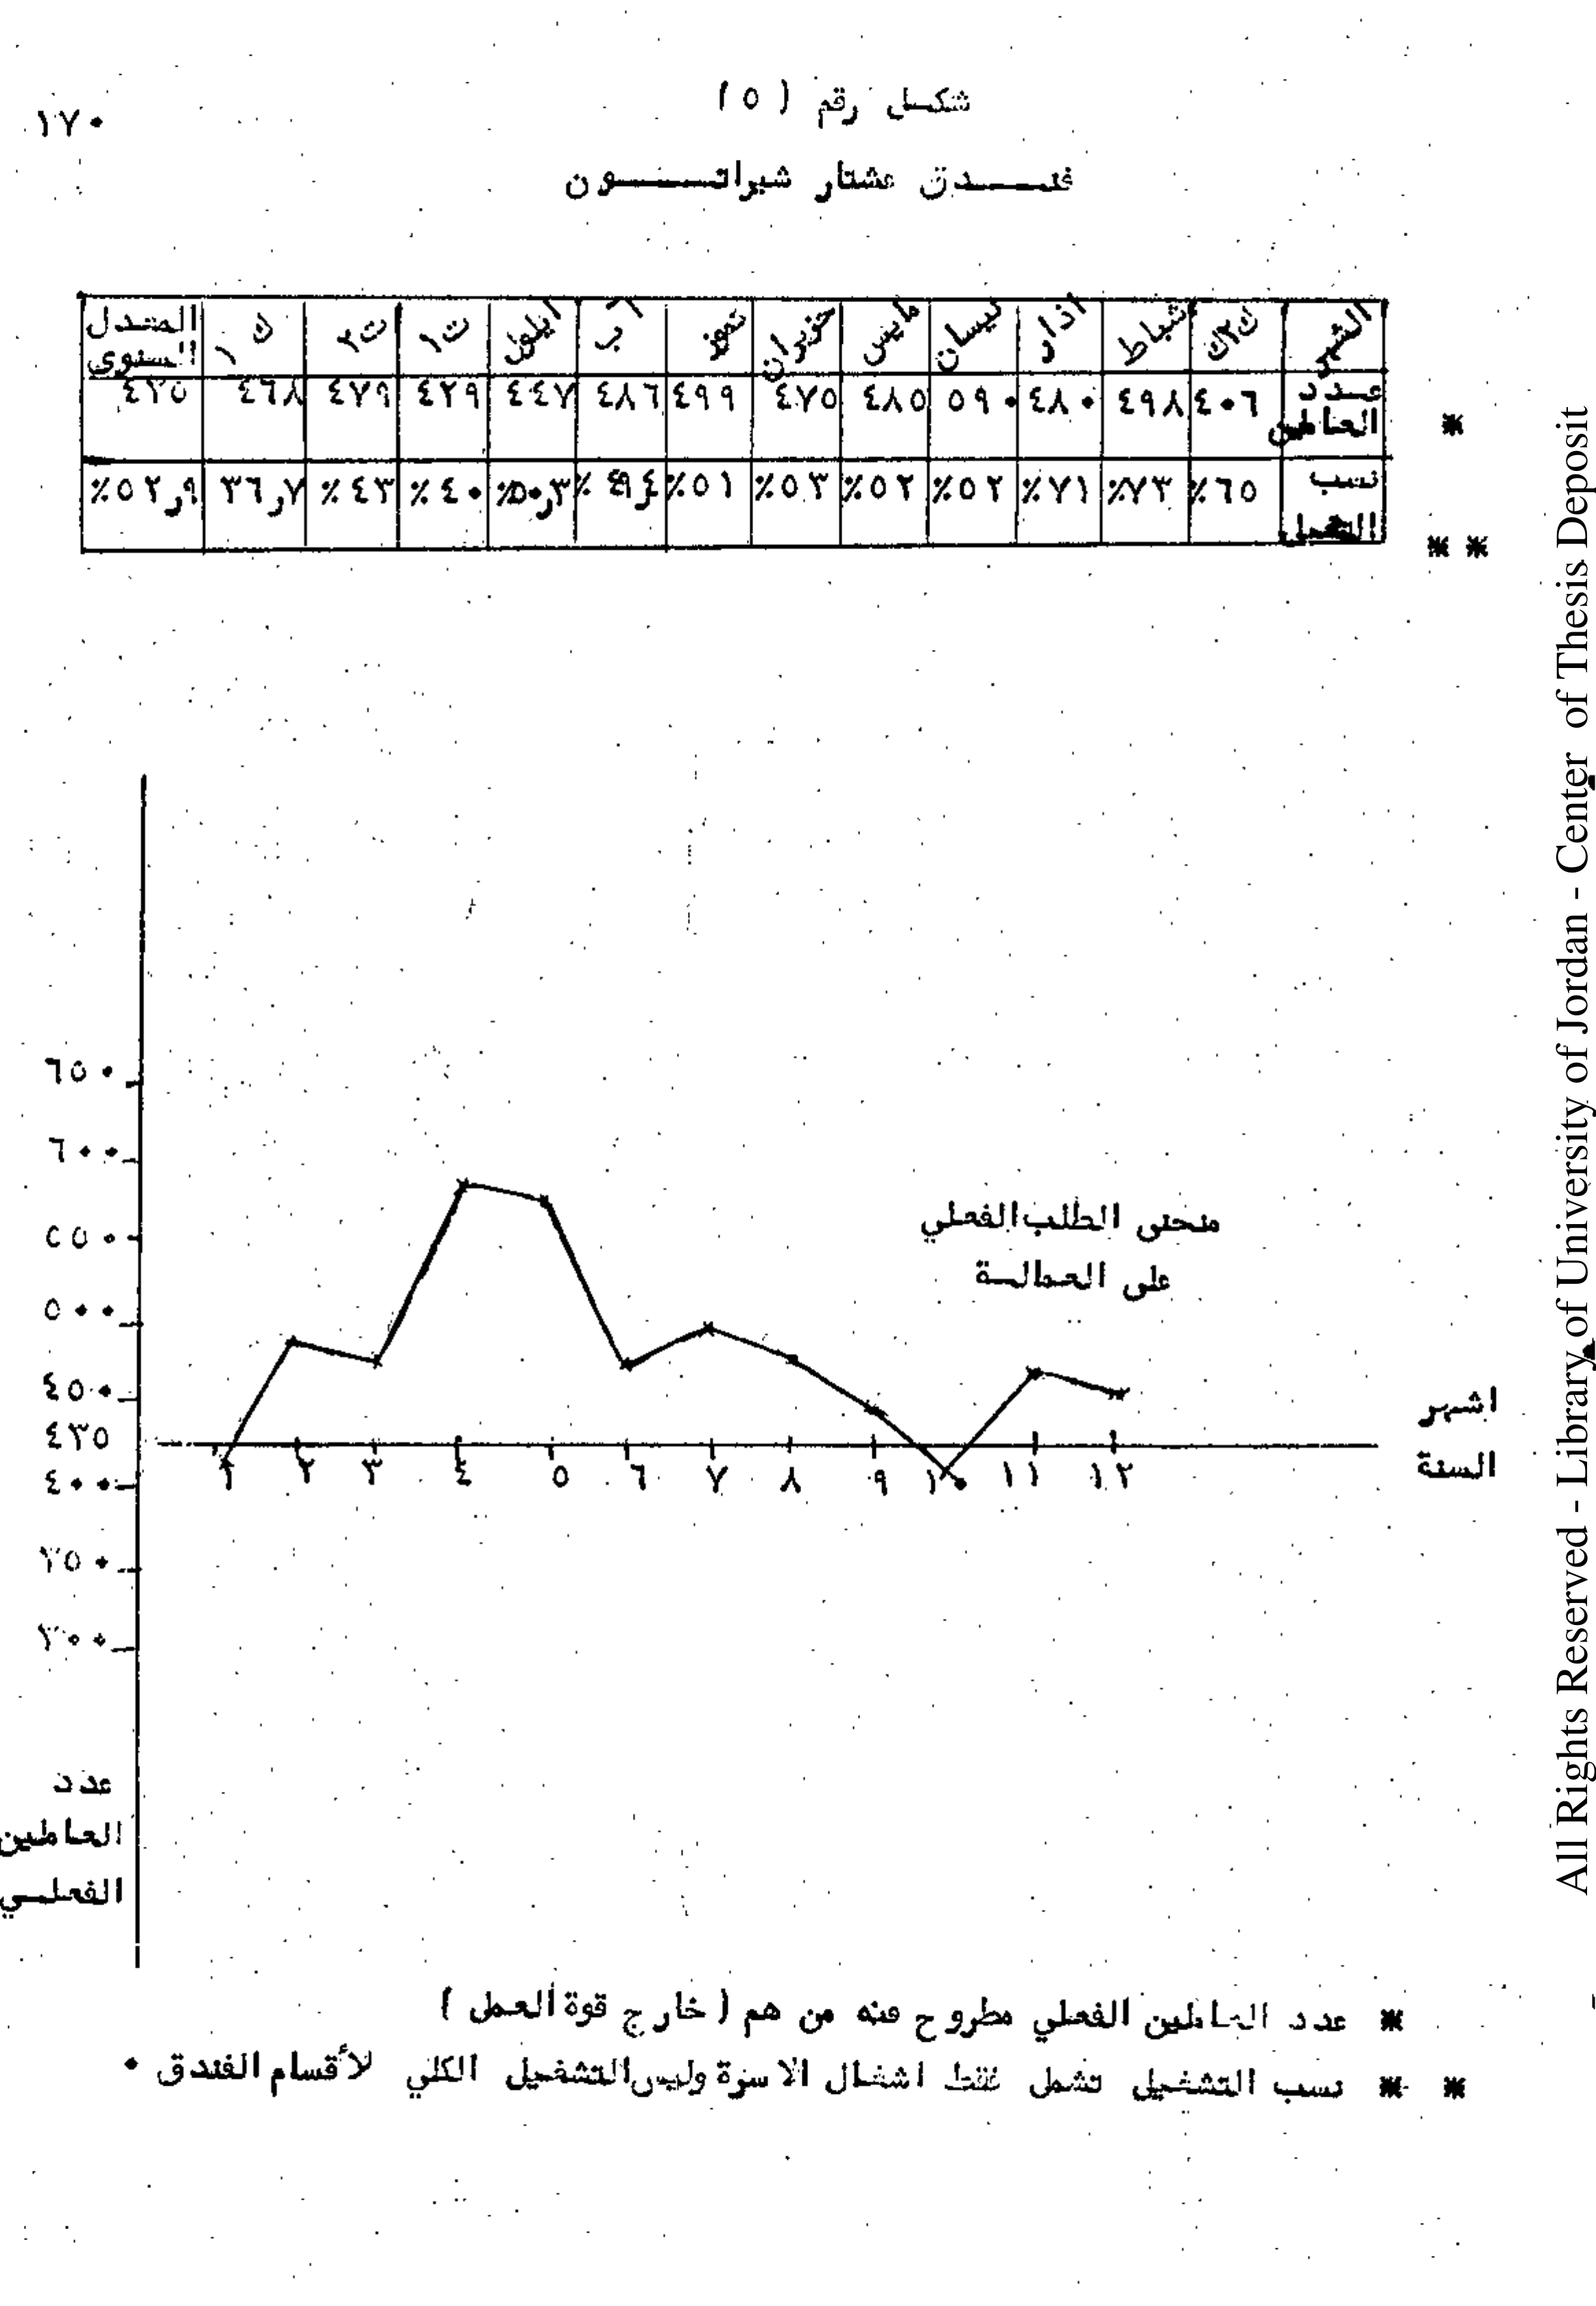 شكل رقم (٥)
١٧٠
فندق عشتار شيراتون
الشهر ك٢ شباط اذار نيسان مايس حزيران تموز آب ايلول ت١ ت٢ ك١ المعدل السنوي
عدد العاملين ٤٠٦ ٤٩٨ ٤٨٠ ٥٩٠ ٤٨٥ ٤٧٥ ٤٩٩ ٤٨٦ ٤٤٧ ٤٢٩ ٤٧٩ ٤٦٨ ٤٣٥
*
نسب التشغيل ٦٥٪ ٧٣٪ ٧١٪ ٥٢٪ ٥٢٪ ٥٣٪ ٥١٪ ٤٩٫٤٪ ٥٠٫٣٪ ٤٠٪ ٤٣٪ ٣٦٫٧ ٥٢٫٩٪
**
٦٥٠
٦٠٠
منحنى الطلب الفعلي
٥٥٠
على العمالة
٥٠٠
٤٥٠
اشهر
٤٣٥
السنة
١ ٢ ٣ ٤ ٥ ٦ ٧ ٨ ٩ ١٠ ١١ ١٢
٤٠٠
٣٥٠
٣٠٠
عدد
العاملين
الفعلي
* عدد العاملين الفعلي مطروح منه من هم (خارج قوة العمل)
* * نسب التشغيل تشمل فقط اشغال الاسرة وليس التشغيل الكلي لأقسام الفندق .
All Rights Reserved - Library of University of Jordan - Center of Thesis Deposit